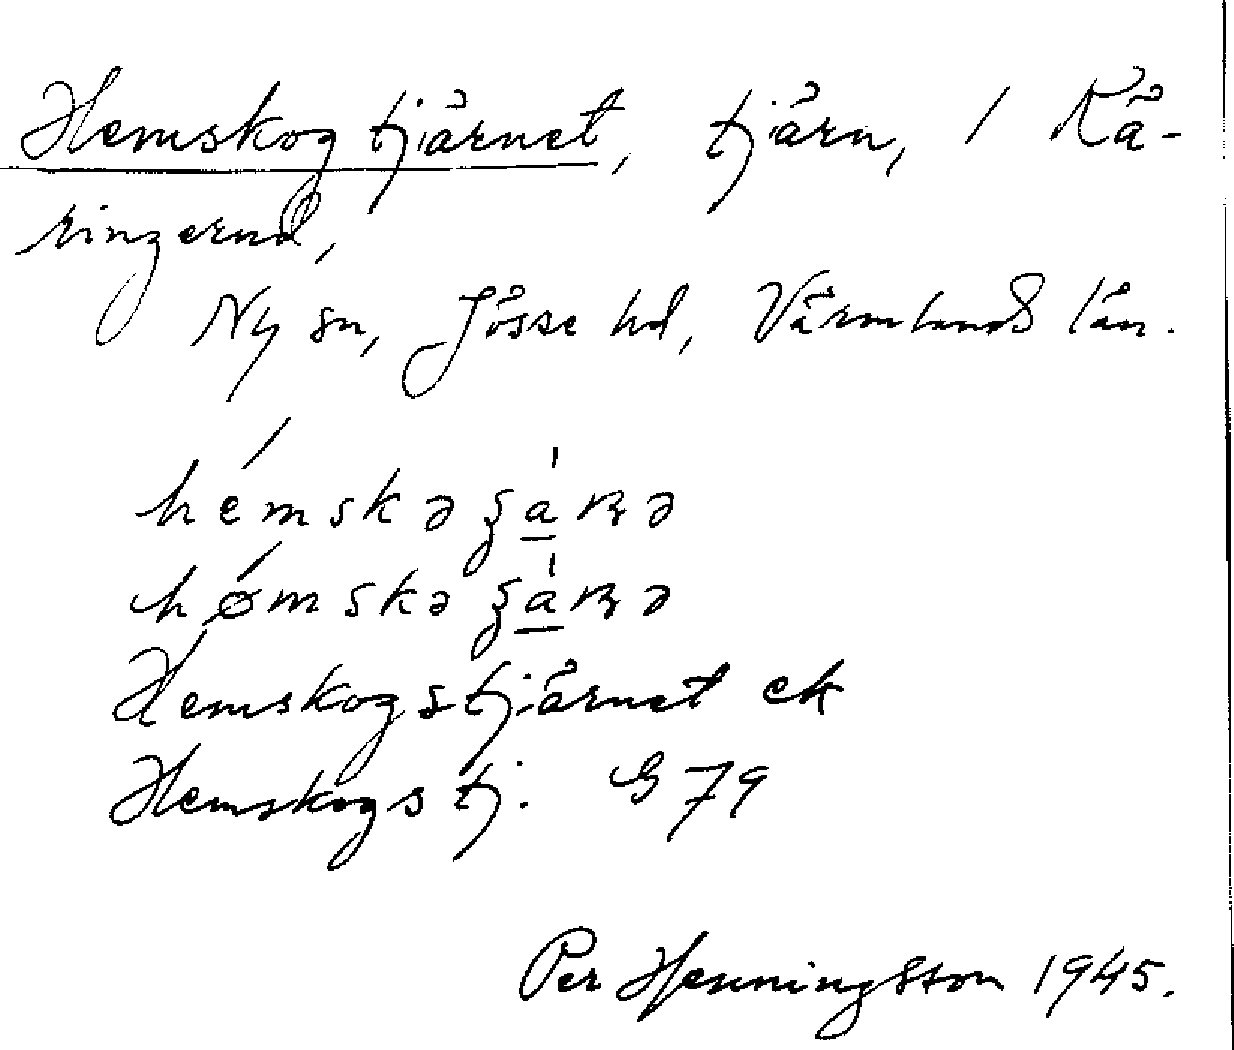 Hemskogtjärnet, tjärn, i Kä-
ringerud,
Ny sn, Jösse hd, Värmlands län.
hémskə ʂa̱ʹɴə
hǿmskə ʂa̱ʹɴə
Hemskogstjärnet ek
Hemskogstj. G 79
Per Henningsson 1945.